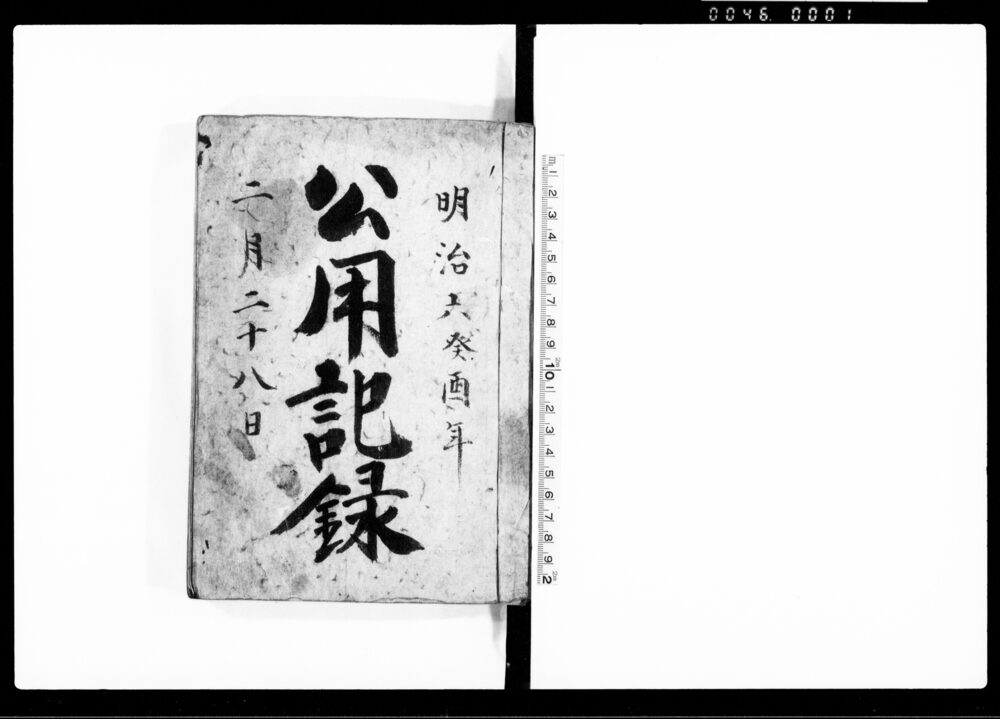 0046 0001
明治六癸酉年
公用記録
二月二十八日
m 1 2 3 4 5 6 7 8 9 10 1 2 3 4 5 6 7 8 9 2